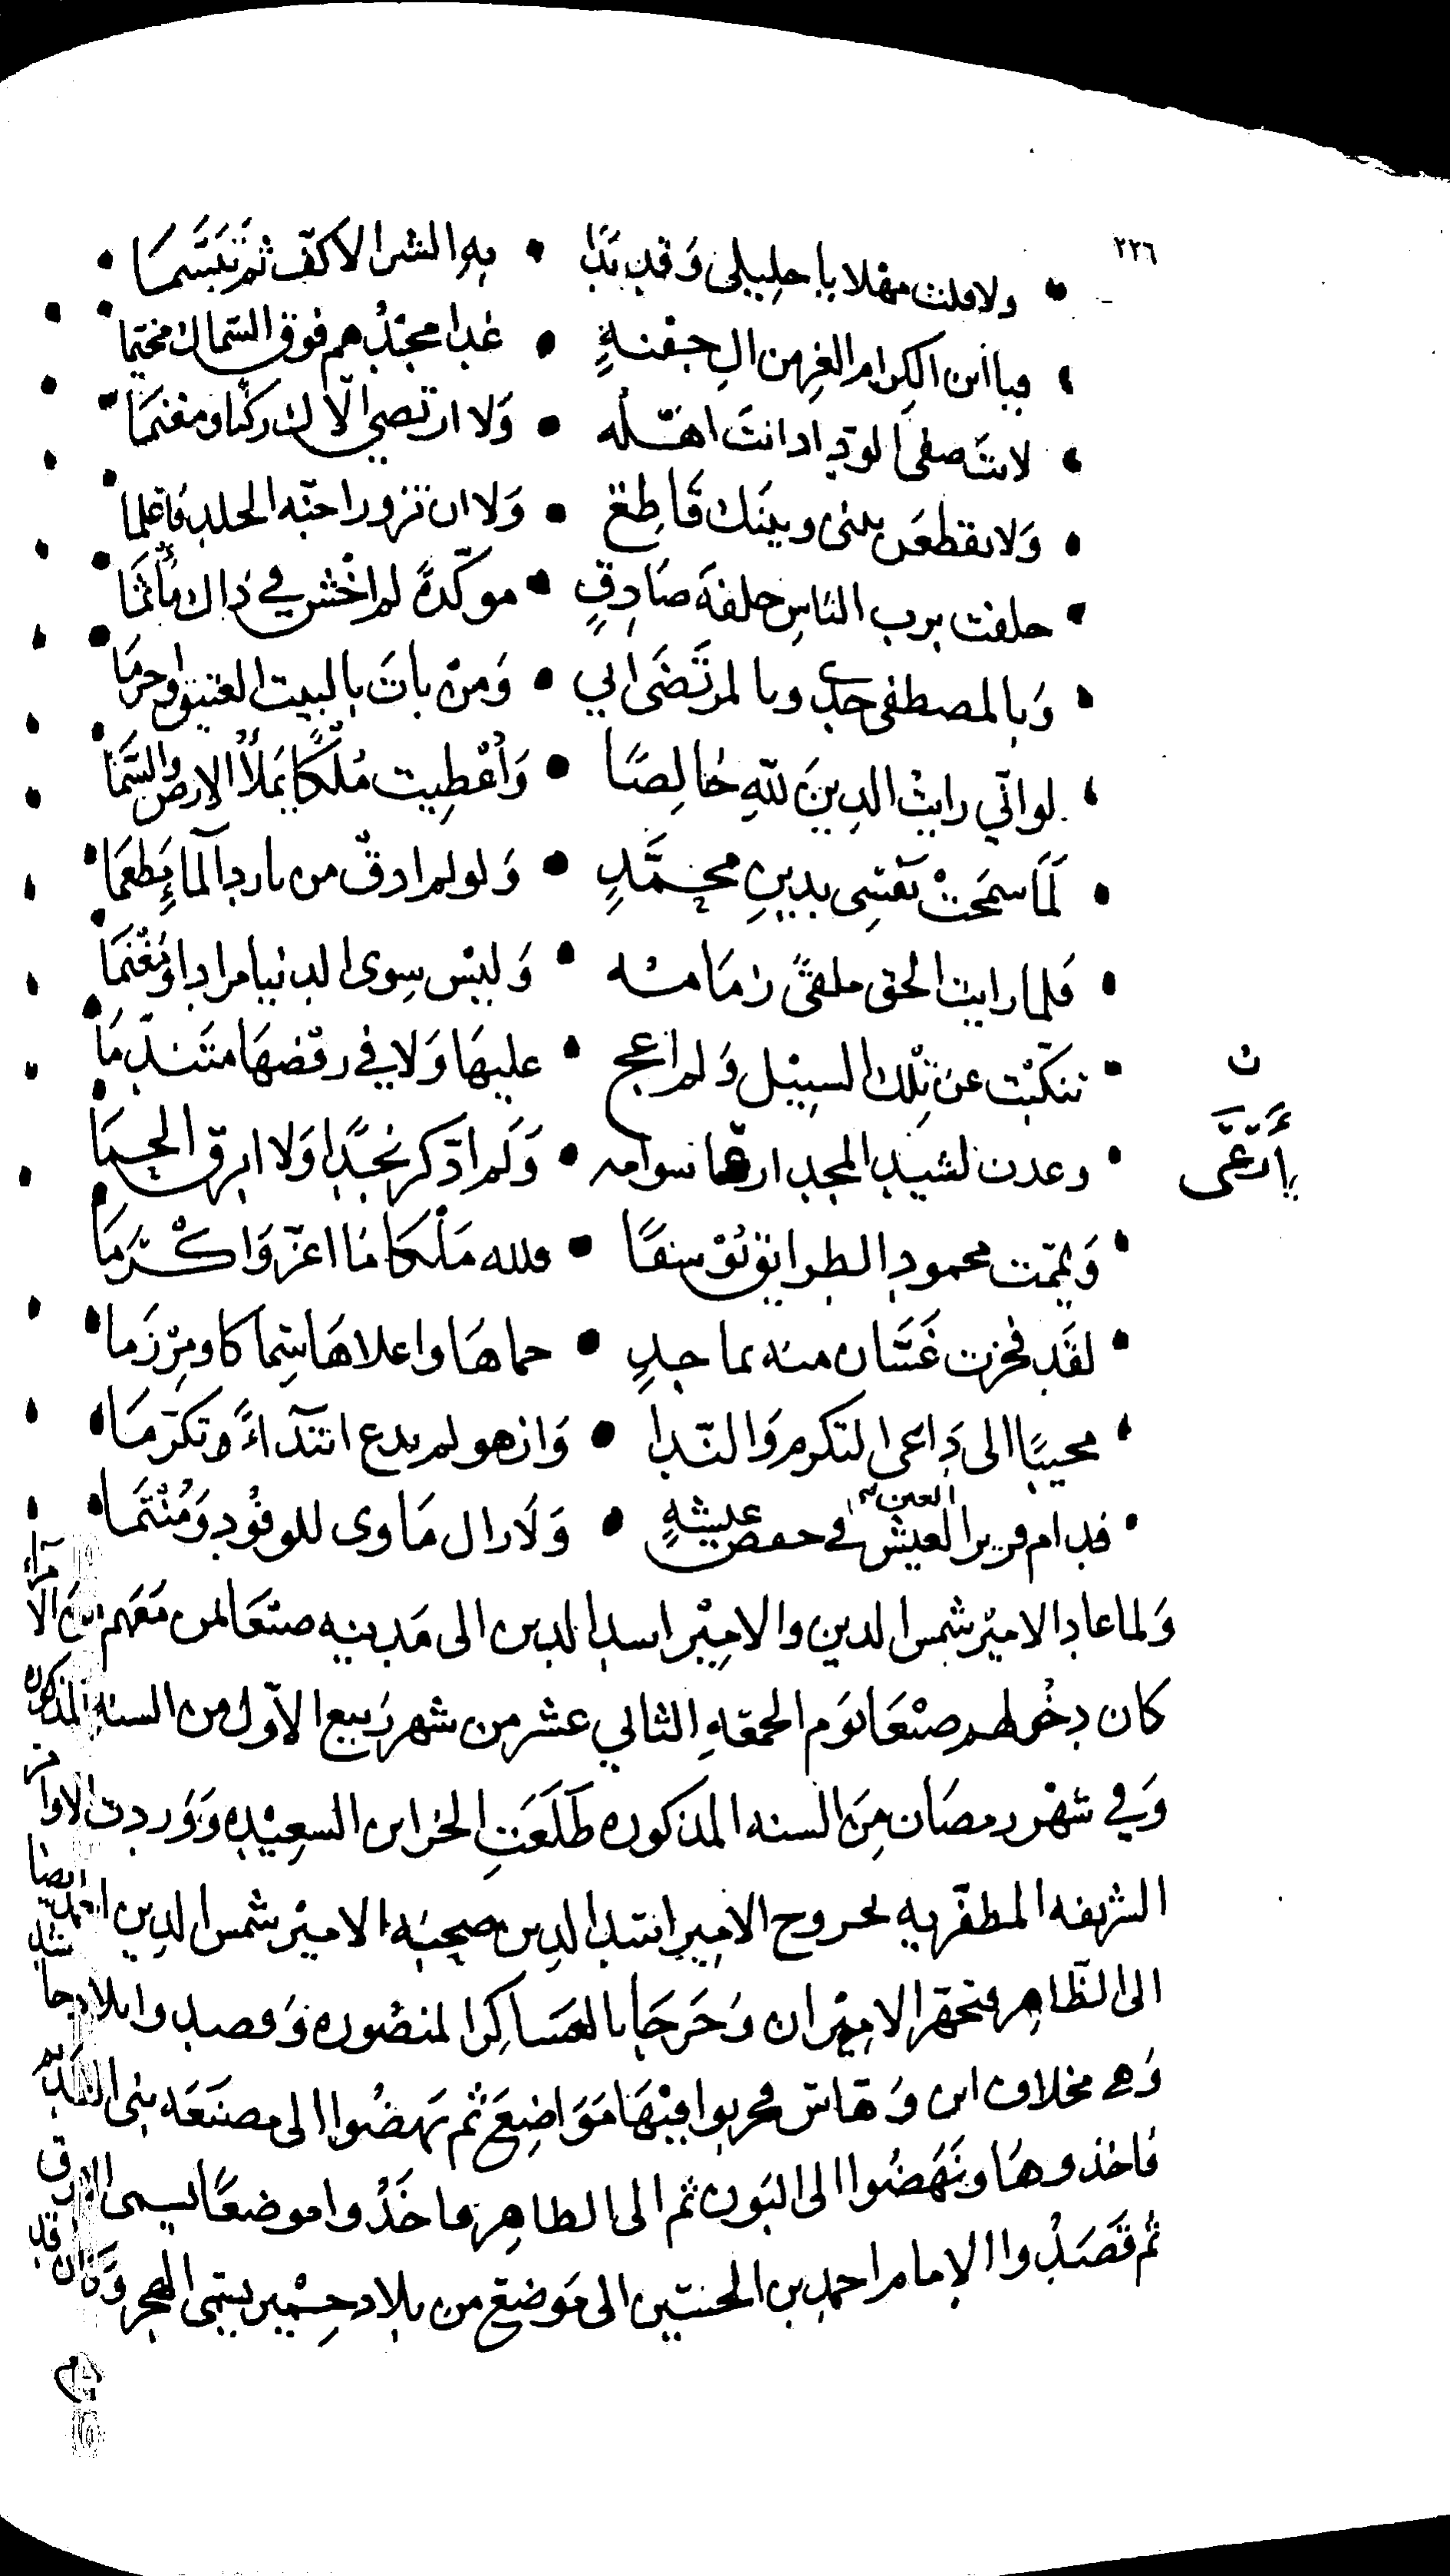 ٢٢٦
ولا قلت مهلا يا خليلى وَقد بَدا • به الشر الاكفّ ثم تبسّما
فيا ابن الكِرام الغرِ من الِ جفنةٍ • غدا مجدُهم فوق السّماك مخيّما
لانتَ صفى الودِ اذ انتَ اهله • وَلا ارتضي الّا لك ركنا ومغنمَا
وَلا يقطعَن بينى وبينك قَاطِعٌ • وَلا ان تزورا جنّه الخلد فاعلما
حلفت برب الناسِ حلفةَ صَادِقٍ • موكّدةً لم اخش في ذاك ماثمَا
وَبالمصطفى جدي وبالمرتَضَى ابي • وَمن باتَ بالبيت العتيق واحرمَا
لو انّي رايتُ الدِينَ للهِ خالِصًا • وَأُعْطِيت مُلْكًا يَملأُ الارض والسّمَا
لَمَا سمَحَتْ نفسِى بدينِ محمَّدٍ • وَلو لم اذقْ من بارد الماءِ مَطعَمَا
فَلما رايت الحق ملقىً زمَامه • وَليْس سِوى الدنيا مرادا وَمَغْنمَا
تنكبْت عن تِلك السبيْل وَلم اعج • عليهَا وَلا في رفضهَا متَندّمَا
وعدت لشيد المجد ارعا سوامه • وَلَم ادّكر نجدًا وَلا ابرق الحِمَا
ن
أرَعَى
وَيمّمْت محمود الطرايق يوْسفًا • فلله مَلْكا مَا اعزّ وَاكْرمَا
لقَد فخرت غَسَّان منه بماجدٍ • حماهَا واعلاهَا سِماكا ومِرْزَما
مجيبًا الى دَاعى التكرم وَالندا • وَان هو لم يدع ابتدآءً وتكرّمَا
فدام قرير العيش في خفض عيشهٍ • وَلَا زال مَاوى للوفُودِ وَمُنْتَمَا
العين
وَلما عاد الاميْر شمس الدين والاميْر اسد الدين الى مَدينه صنعَا لمن مَعَهم من الامرآء
كان دخُولهم صنْعَا يوَم الجمعَهِ الثاني عشر من شهر رَبيع الاوّل من السنهِ المذكوره
وَفي شهْر رمضَان مِنَ السنه المذكوره طَلَعَتِ الخزاين السعِيْده وَوَردت الاوامر
الشريفه المظفّريه بخروج الامير اسد الدين صحبَه الاميْر شمس الدين احمد ايضا
الى الظّاهِر فتجهز الامِيْران وَخَرجَا بالعسَاكِر المنصُوره وَقصدوا بلاد
وَهى مخلاف ابن وَهّاس فخربوا فيْهَا مَوَاضِعَ ثم نهضُوا الى مصنَعَه بنى
فاخذوهَا ونَهَضُوا الى البَون ثم الى الظاهِر فاخَذُوا موضعًا يسمى
ثم قَصَدُوا الامام احمد بن الحسَيْن الى مَوضع من بلاد حِمْيَر يسَمى الهجر وَكان قد